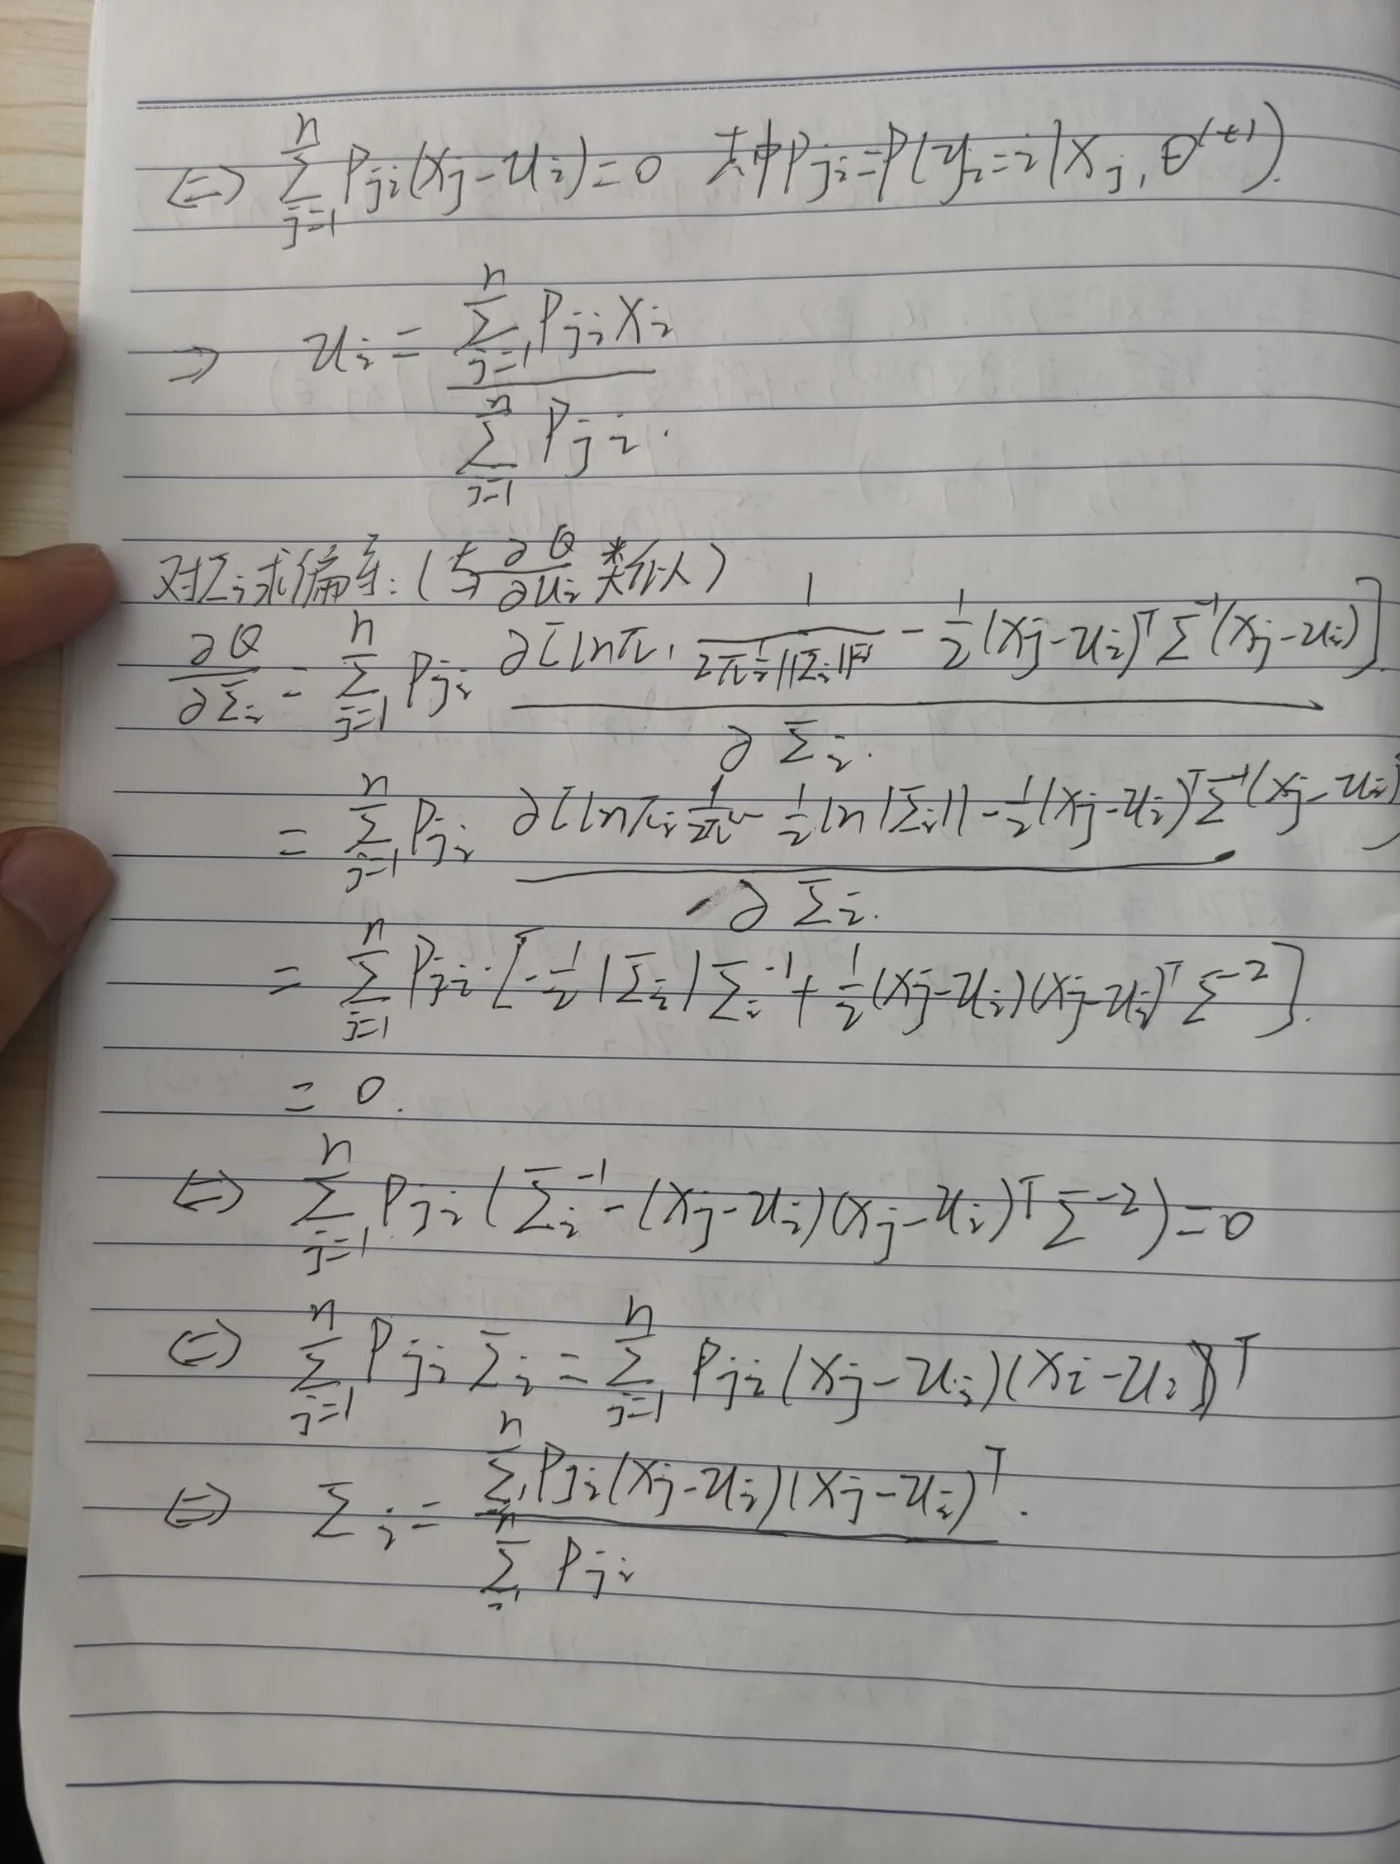 ⇔ \sum_{j=1}^{n} P_{ji}(x_j - u_i) = 0 其中 P_{ji} = P(y_i = i | x_j, θ^{(t)}).
⇒ u_i = \frac{\sum_{j=1}^{n} P_{ji} x_i}{\sum_{j=1}^{n} P_{ji}}.
对Σ_i求偏导: (与\frac{∂Q}{∂u_i}类似)
\frac{∂Q}{∂Σ_i} = \sum_{j=1}^{n} P_{ji} \frac{∂[lnπ_i · \frac{1}{2π^{\frac{1}{2}}||Σ_i||} - \frac{1}{2}(x_j - u_i)^T Σ^{-1}(x_j - u_i)]}{∂Σ_i}.
= \sum_{j=1}^{n} P_{ji} \frac{∂[lnπ_i \frac{1}{2π} - \frac{1}{2} ln|Σ_i|| - \frac{1}{2}(x_j - u_i)^T Σ^{-1}(x_j - u_i)}{∂Σ_i}.
= \sum_{j=1}^{n} P_{ji} · [-\frac{1}{2} |Σ_i| Σ_i^{-1} + \frac{1}{2}(x_j - u_i)(x_j - u_i)^T Σ^{-2}].
= 0.
⇔ \sum_{j=1}^{n} P_{ji} (Σ_i^{-1} - (x_j - u_i)(x_j - u_i)^T Σ^{-2}) = 0
⇔ \sum_{j=1}^{n} P_{ji} Σ_i = \sum_{j=1}^{n} P_{ji} (x_j - u_i)(x_i - u_i)^T
⇔ Σ_i = \frac{\sum_{1}^{n} P_{ji}(x_j - u_i)(x_j - u_i)^T}{\sum_{1}^{n} P_{ji}}.